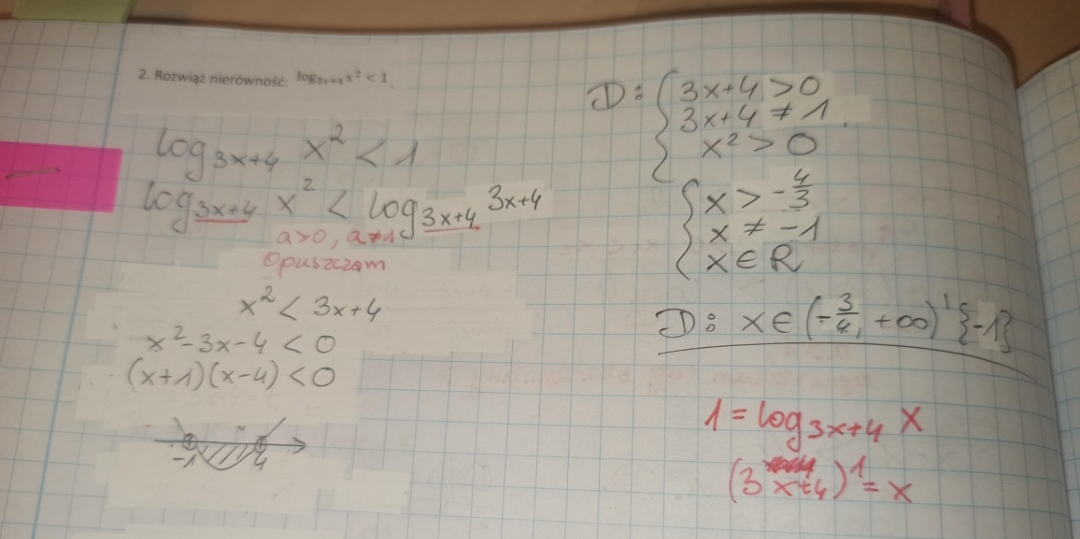 2. Rozwiąż nierówność: log₃ₓ₊₄ x² < 1
log₃ₓ₊₄ x² < 1
log₃ₓ₊₄ x² < log₃ₓ₊₄ 3x+4
a>0, a≠1
Opuszczam
x² < 3x+4
x²-3x-4 < 0
(x+1)(x-4) < 0
-1 4
D: { 3x+4 > 0
3x+4 ≠ 1
x² > 0
{ x > -4/3
x ≠ -1
x ∈ R
D: x ∈ (-3/4, +∞) \ {-1}
1 = log₃ₓ₊₄ x
(3x+4)¹ = x